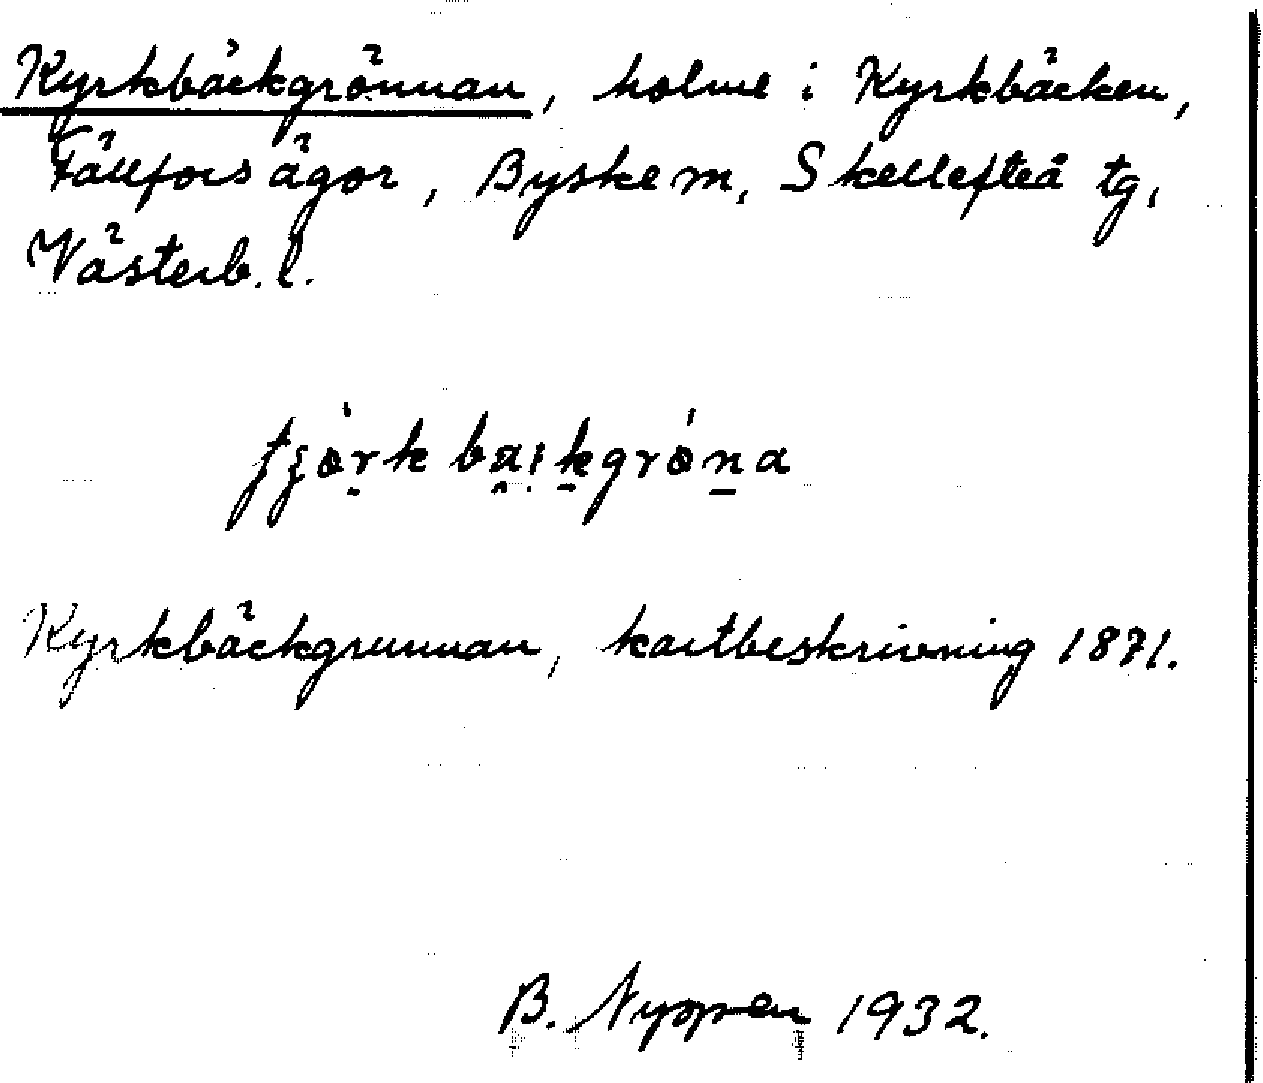 Kyrkbäckgrönnan, holme i Kyrkbäcken,
Fällfors ägor, Byske m, Skellefteå tg,
Västerb. l.
Kyrkbäckgrunnan, kartbeskrivning 1871.
B. Nyppen 1932.